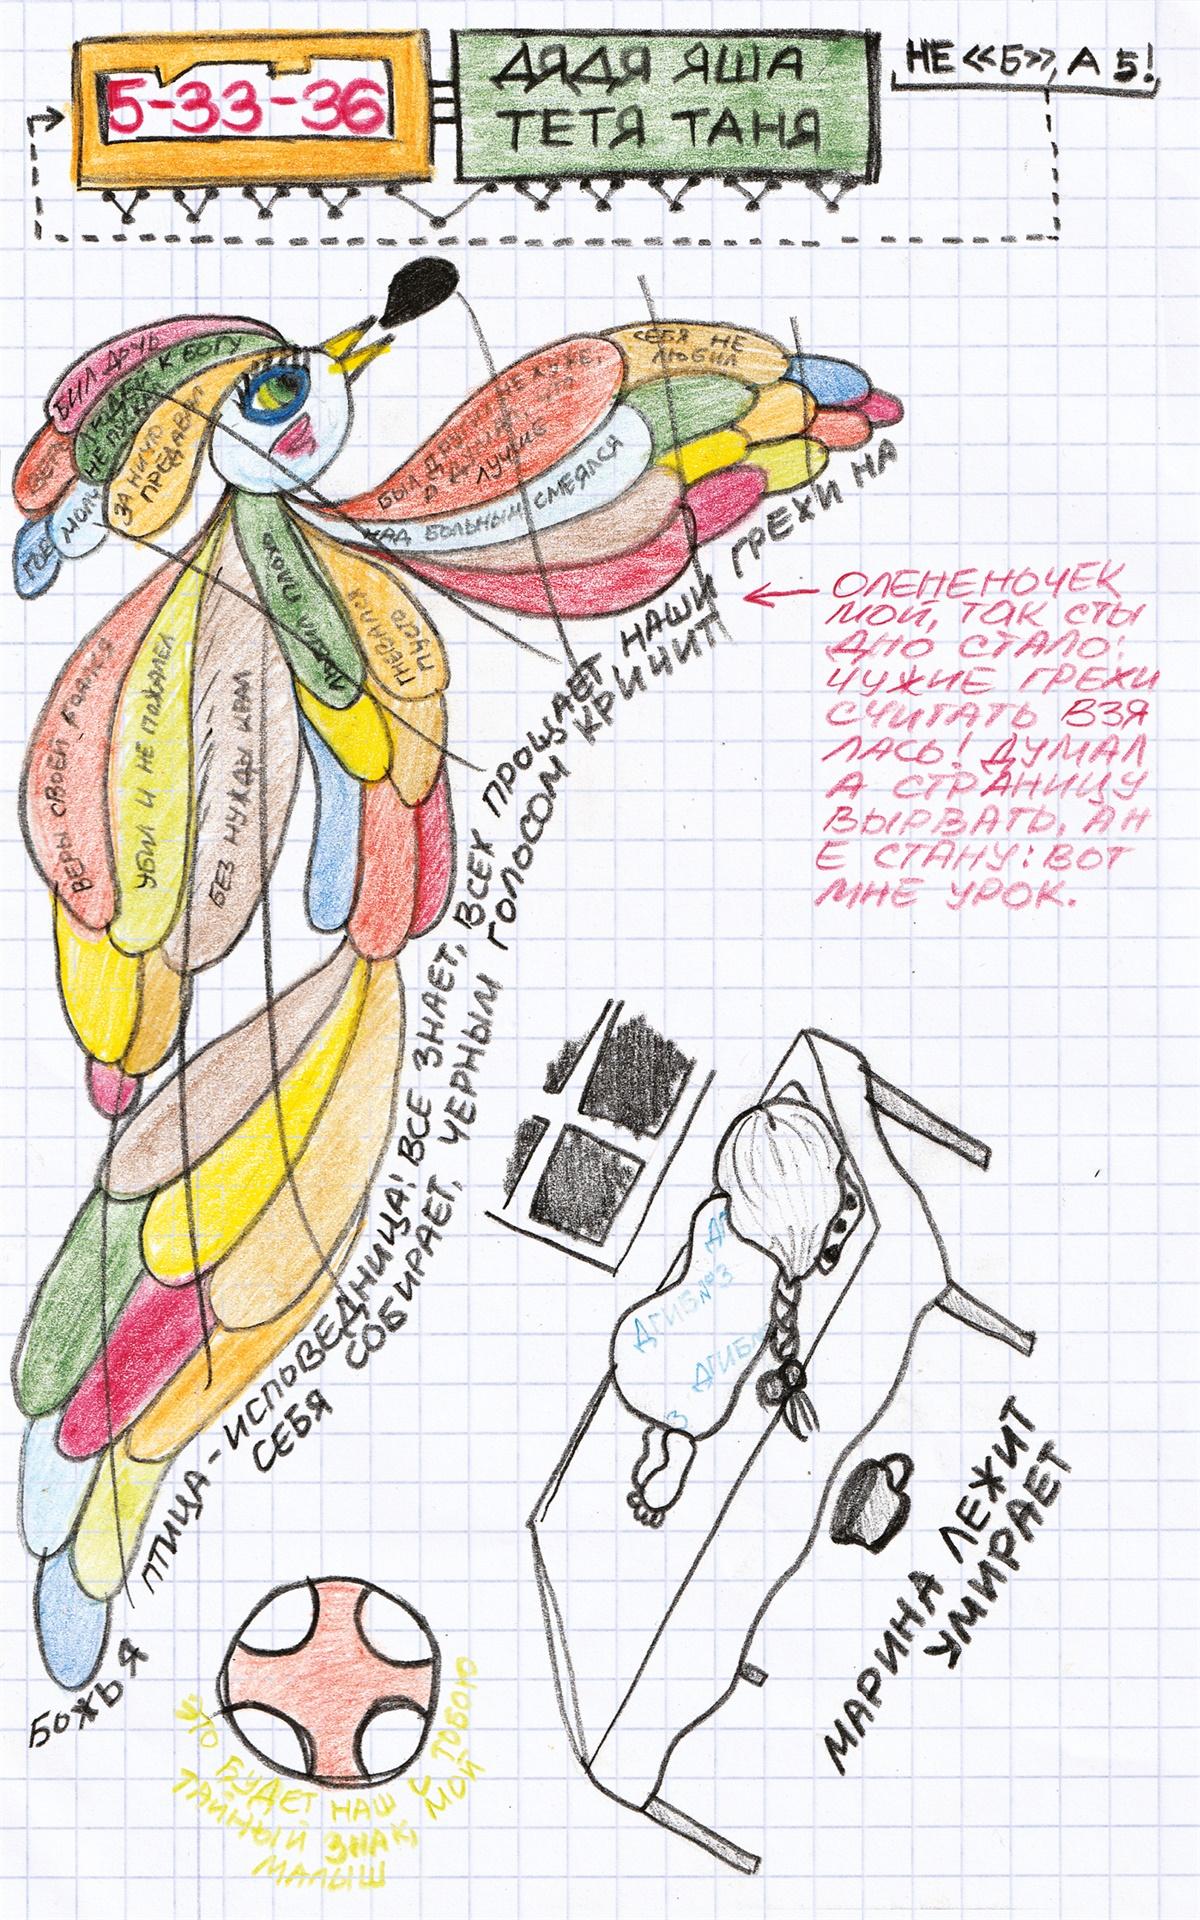 5-33-36
ДЯДЯ ЯША
ТЕТЯ ТАНЯ
НЕ «Б», А 5!
БИЛ ДРУБ
К БОГУ
НЕ ПУСКАЛ
ЗА НИЧТО
ПРЕДАВАЛ
МОЛЧ
БЫЛ ДРУГИХ НЕ ХУЖЕ,
А ДУМАЛ, ЧТО
ЛУЧШЕ
СЕБЯ НЕ
ЛЮБИЛ
НАД БОЛЬНЫМ СМЕЯЛСЯ
ПЛОХО
ГНЕВАЛСЯ
ПУСТО
ВЕРЫ СВОЕЙ БОЯЛСЯ
УБИЛ И НЕ ПОЖАЛЕЛ
БЕЗ НУЖДЫ КРАЛ
БОЖЬЯ ПТИЦА-ИСПОВЕДНИЦА! ВСЕ ЗНАЕТ, ВСЕХ ПРОЩАЕТ НАШИ ГРЕХИ НА
СЕБЯ СОБИРАЕТ, ЧЕРНЫМ ГОЛОСОМ КРИЧИТ!
ОЛЕНЕНОЧЕК
МОЙ, ТАК СТЫ
ДНО СТАЛО:
ЧУЖИЕ ГРЕХИ
СЧИТАТЬ ВЗЯ
ЛАСЬ! ДУМАЛ
А СТРАНИЦУ
ВЫРВАТЬ, АН
Е СТАНУ: ВОТ
МНЕ УРОК.
ДГИБ №3
ДГИБ №
3
МАРИНА ЛЕЖИТ
УМИРАЕТ
ЭТО БУДЕТ НАШ С ТОБОЮ
ТАЙНЫЙ ЗНАК, МОЙ
МАЛЫШ